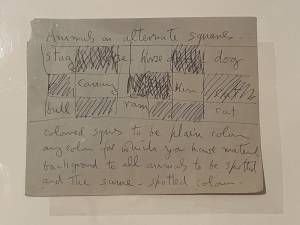 Animals on alternate squares.
stag horse dog
ram
bull cat
colored sqrs to be plain colour
any colr for which you have material
background to all animals to be spotted
and the same - spotted colour.